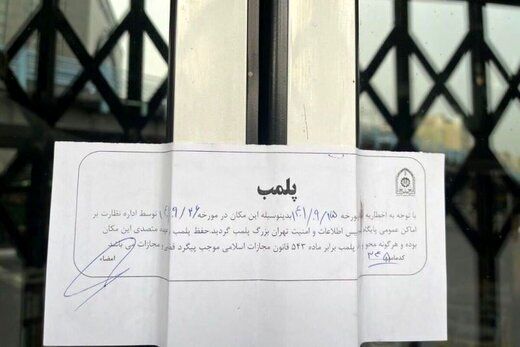 پلمب
با توجه به اخطاریه مورخه ۱۴۰۱/۹/۱۵ بدینوسیله این مکان در مورخه ۹/۲۶ توسط اداره نظارت بر
اماکن عمومی پایگاه پلیس اطلاعات و امنیت تهران بزرگ پلمب گردید.حفظ پلمب بعهده متصدی این مکان
بوده و هرگونه محو پلمب برابر ماده ۵۴۳ قانون مجازات اسلامی موجب پیگرد و مجازات می باشد.
کدمامور ۳۴۵ امضاء